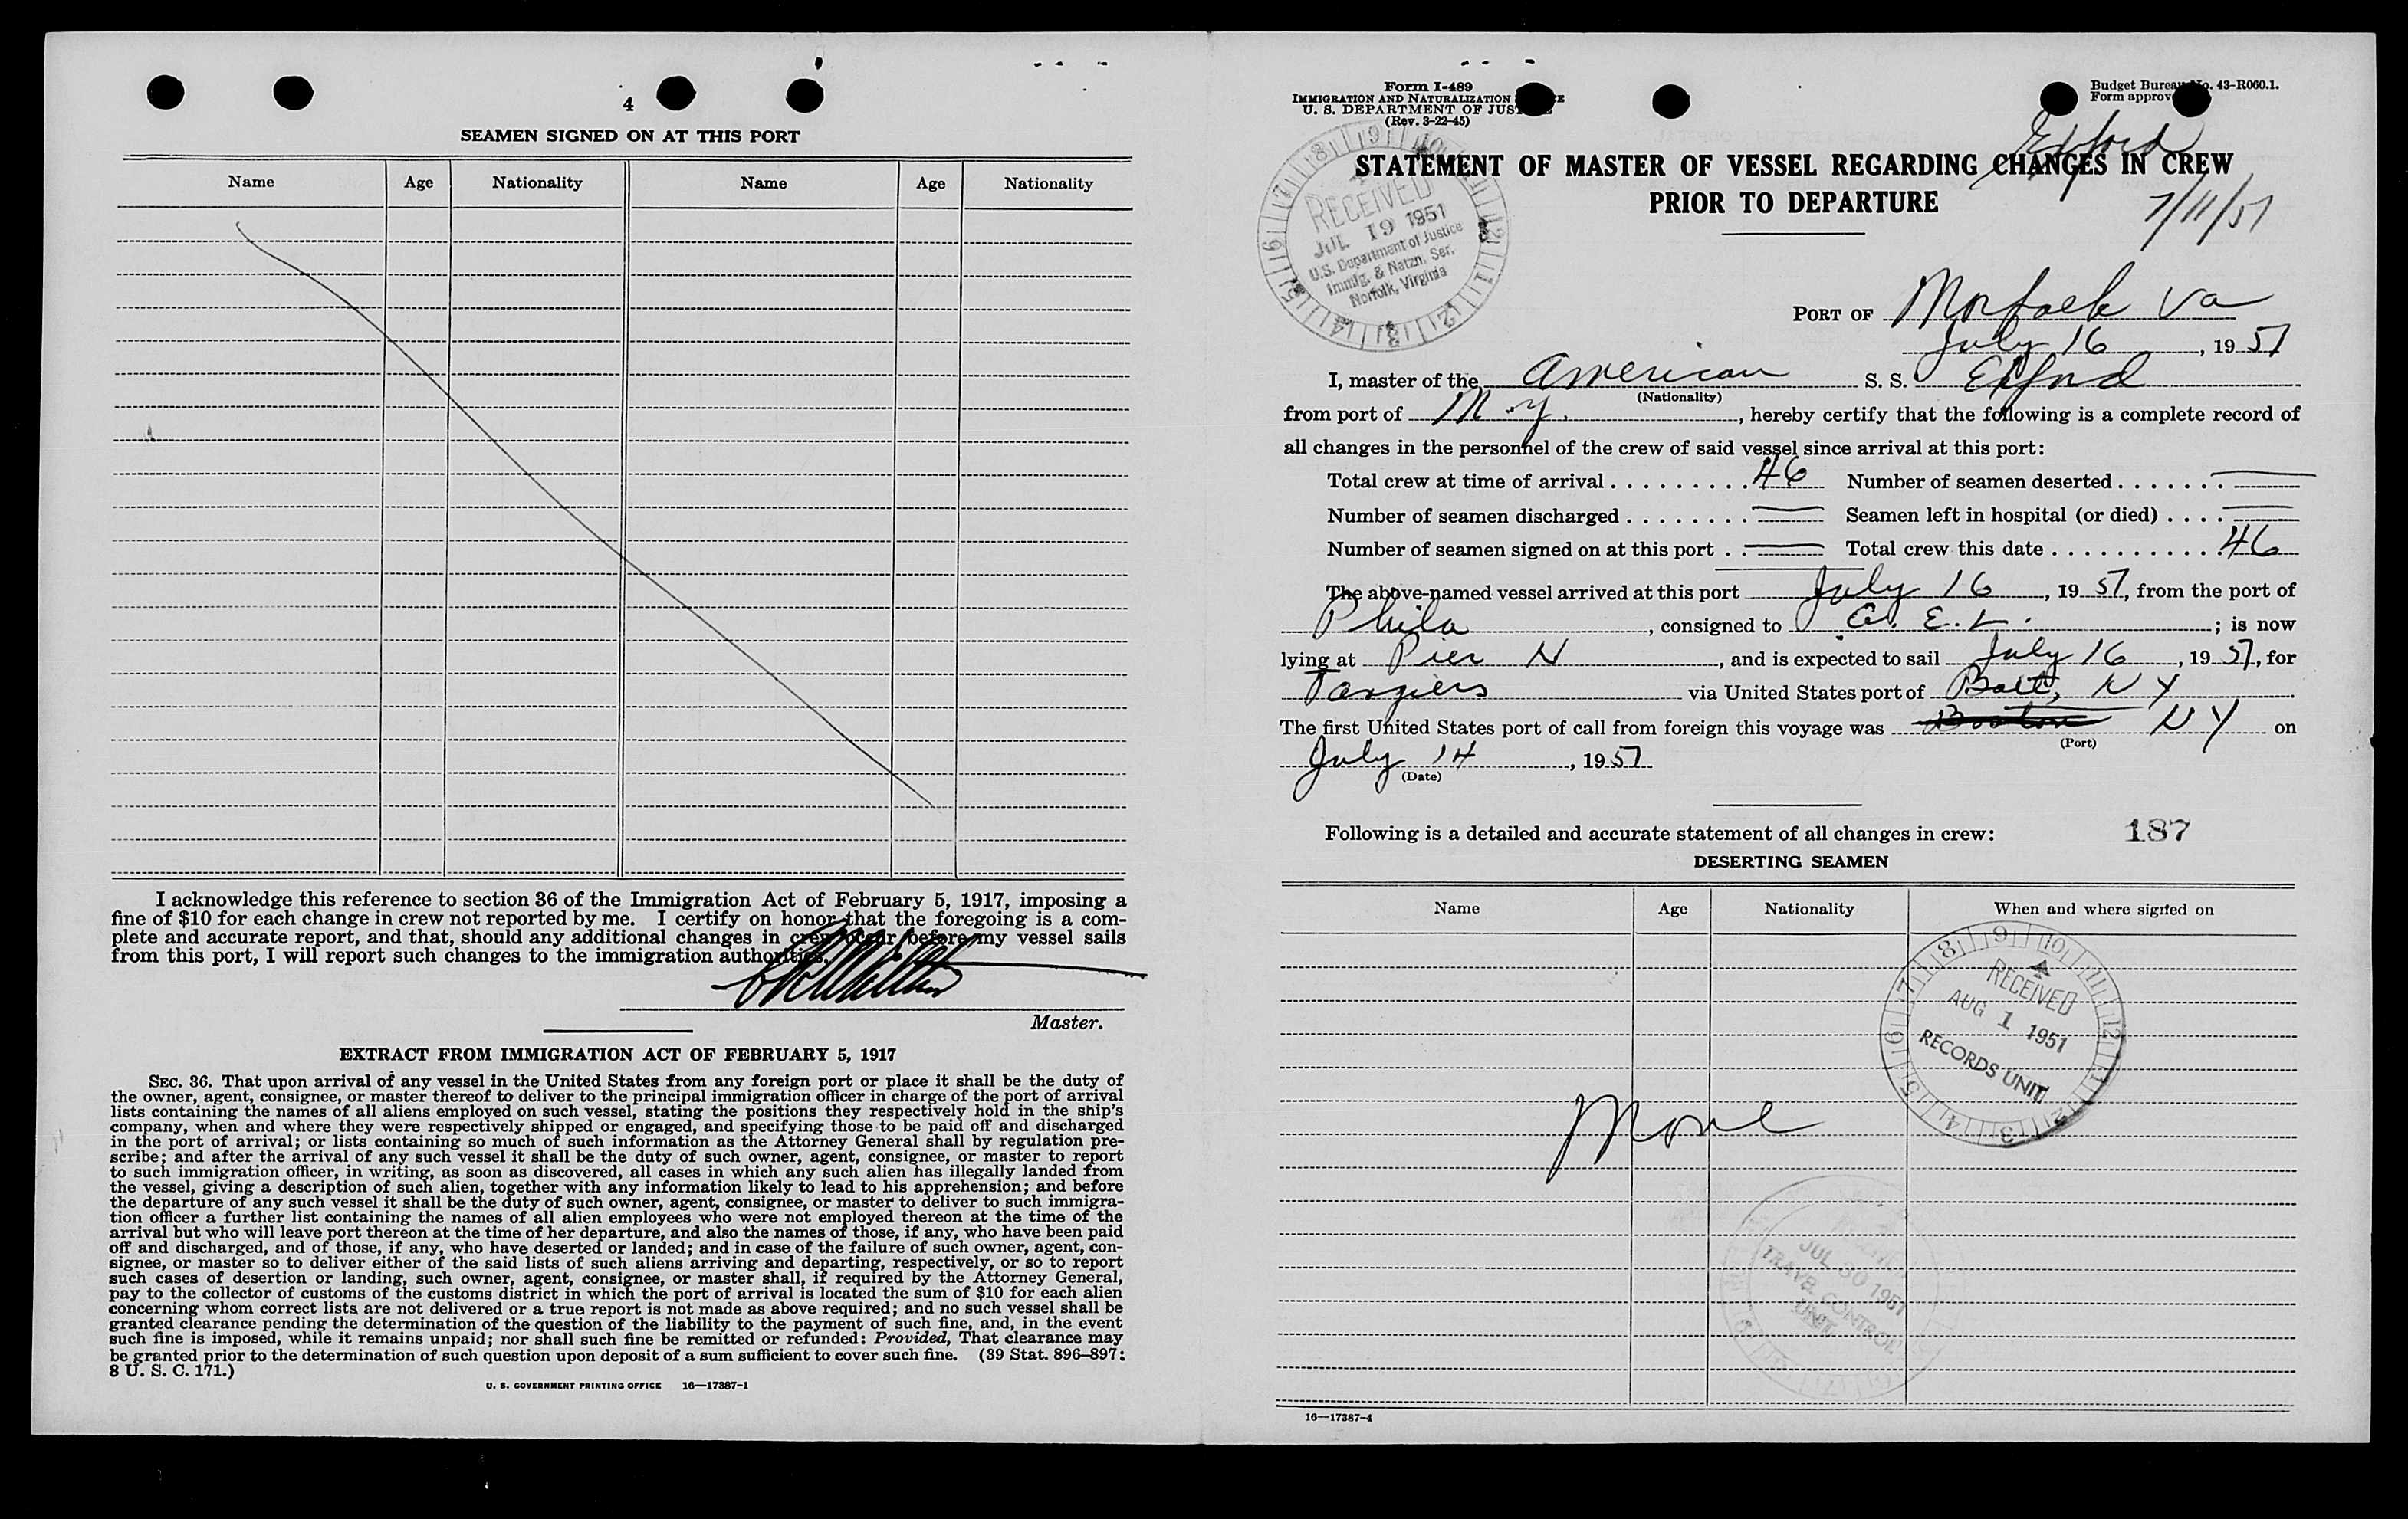 4
SEAMEN SIGNED ON AT THIS PORT
Name Age Nationality Name Age Nationality
I acknowledge this reference to section 36 of the Immigration Act of February 5, 1917, imposing a
fine of $10 for each change in crew not reported by me. I certify on honor that the foregoing is a com-
plete and accurate report, and that, should any additional changes in crew occur before my vessel sails
from this port, I will report such changes to the immigration authorities.
Master.
EXTRACT FROM IMMIGRATION ACT OF FEBRUARY 5, 1917
SEC. 36. That upon arrival of any vessel in the United States from any foreign port or place it shall be the duty of
the owner, agent, consignee, or master thereof to deliver to the principal immigration officer in charge of the port of arrival
lists containing the names of all aliens employed on such vessel, stating the positions they respectively hold in the ship's
company, when and where they were respectively shipped or engaged, and specifying those to be paid off and discharged
in the port of arrival; or lists containing so much of such information as the Attorney General shall by regulation pre-
scribe; and after the arrival of any such vessel it shall be the duty of such owner, agent, consignee, or master to report
to such immigration officer, in writing, as soon as discovered, all cases in which any such alien has illegally landed from
the vessel, giving a description of such alien, together with any information likely to lead to his apprehension; and before
the departure of any such vessel it shall be the duty of such owner, agent, consignee, or master to deliver to such immigra-
tion officer a further list containing the names of all alien employees who were not employed thereon at the time of the
arrival but who will leave port thereon at the time of her departure, and also the names of those, if any, who have been paid
off and discharged, and of those, if any, who have deserted or landed; and in case of the failure of such owner, agent, con-
signee, or master so to deliver either of the said lists of such aliens arriving and departing, respectively, or so to report
such cases of desertion or landing, such owner, agent, consignee, or master shall, if required by the Attorney General,
pay to the collector of customs of the customs district in which the port of arrival is located the sum of $10 for each alien
concerning whom correct lists are not delivered or a true report is not made as above required; and no such vessel shall be
granted clearance pending the determination of the question of the liability to the payment of such fine, and, in the event
such fine is imposed, while it remains unpaid; nor shall such fine be remitted or refunded: Provided, That clearance may
be granted prior to the determination of such question upon deposit of a sum sufficient to cover such fine. (39 Stat. 896–897;
8 U. S. C. 171.)
U. S. GOVERNMENT PRINTING OFFICE 16—17387-1
Form I-489
IMMIGRATION AND NATURALIZATION
U. S. DEPARTMENT OF JUSTICE
(Rev. 3-22-45)
Budget Bureau No. 43-R060.1.
Form approved
Exford
STATEMENT OF MASTER OF VESSEL REGARDING CHANGES IN CREW
PRIOR TO DEPARTURE
7/11/51
RECEIVED
JUL 19 1951
U.S. Department of Justice
Immig. & Natzn. Ser.
Norfolk, Virginia
PORT OF Norfolk Va
July 16, 1951
I, master of the American S. S. Exford
(Nationality)
from port of N.Y., hereby certify that the following is a complete record of
all changes in the personnel of the crew of said vessel since arrival at this port:
Total crew at time of arrival 46 Number of seamen deserted —
Number of seamen discharged — Seamen left in hospital (or died) —
Number of seamen signed on at this port — Total crew this date 46
The above-named vessel arrived at this port July 16, 1951, from the port of
Phila, consigned to A. E. L.; is now
lying at Pier N, and is expected to sail July 16, 1951, for
Tangiers via United States port of Balt, NY
The first United States port of call from foreign this voyage was Boston NY on
(Port)
July 14, 1951
(Date)
Following is a detailed and accurate statement of all changes in crew: 187
DESERTING SEAMEN
Name Age Nationality When and where signed on
RECEIVED
AUG 1 1951
RECORDS UNIT
None
RECEIVED
JUL 30 1951
TRAVEL CONTROL
UNIT
16—17387-4